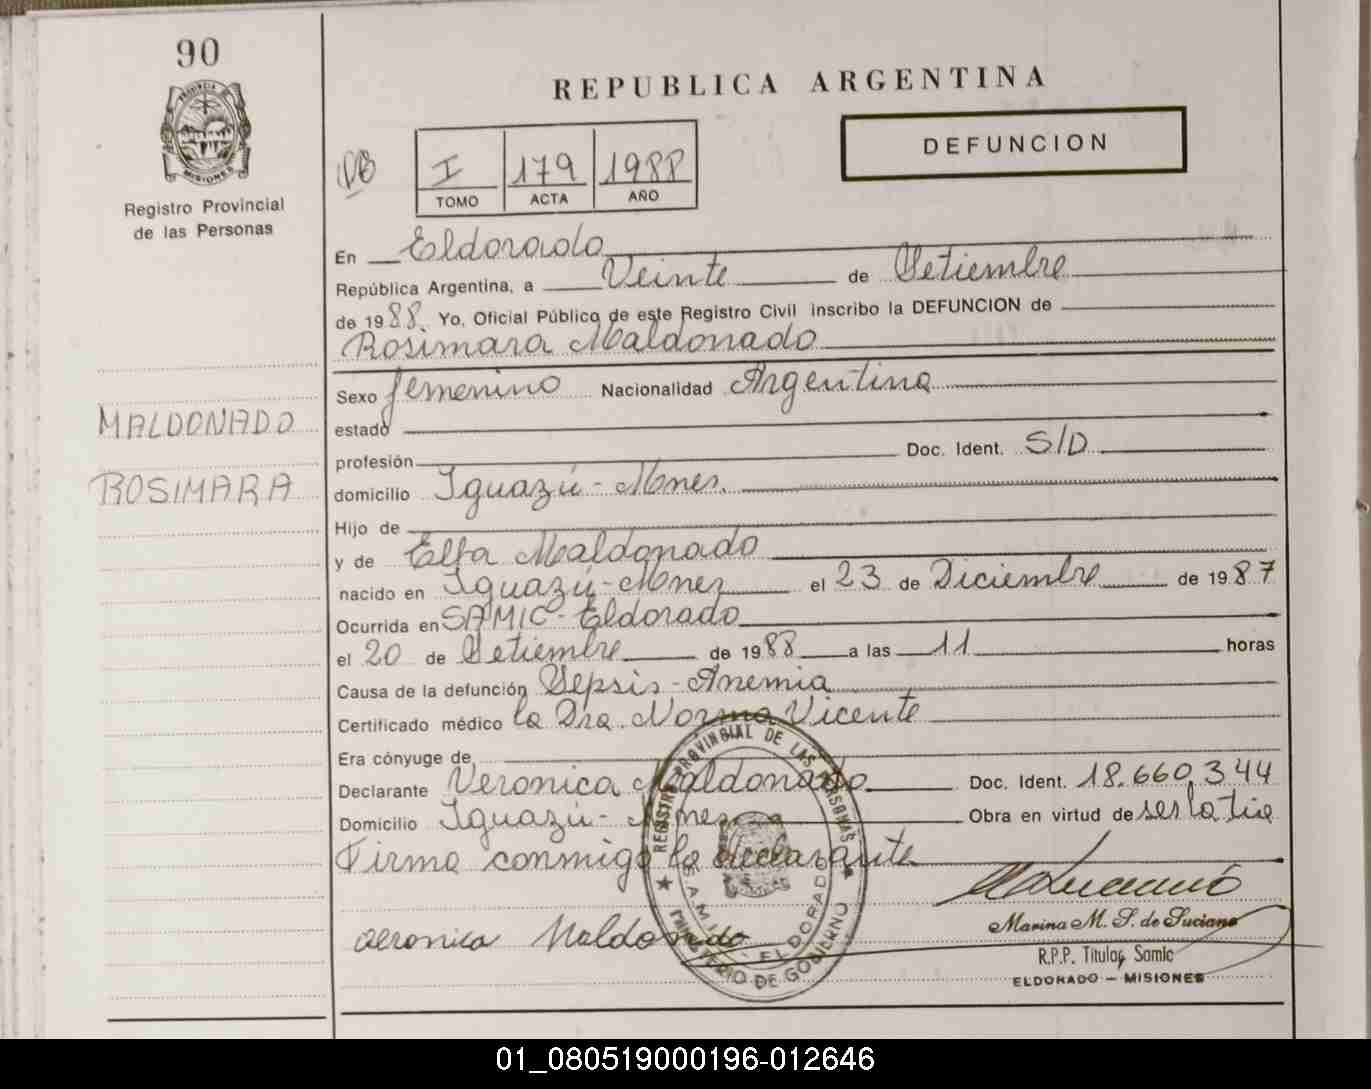 90
PROVINCIA DE
MISIONES
Registro Provincial
de las Personas
MALDONADO
ROSIMARA
REPUBLICA ARGENTINA
DEFUNCION
I 179 1988
TOMO ACTA AÑO
En Eldorado
República Argentina, a Veinte de Setiembre
de 1988. Yo, Oficial Público de este Registro Civil inscribo la DEFUNCION de
Rosimara Maldonado
Sexo femenino Nacionalidad Argentina
estado
profesión Doc. Ident. S/D
domicilio Iguazú - Mnes.
Hijo de
y de Elfa Maldonado
nacido en Iguazú - Mnes el 23 de Diciembre de 1987
Ocurrida en SAMIC - Eldorado
el 20 de Setiembre de 1988 a las 11 horas
Causa de la defunción Sepsis - Anemia
Certificado médico la Dra. Norma Vicente
Era cónyuge de
Declarante Veronica Maldonado Doc. Ident. 18.660.344
Domicilio Iguazú - Mnes Obra en virtud de ser la tia
Firma conmigo la declarante
Veronica Maldonado
Marina M. S. de Luciano
R.P.P. Titular Samic
ELDORADO - MISIONES
REGISTRO PROVINCIAL DE LAS PERSONAS
S.A.M.I.C. - ELDORADO
MINISTERIO DE GOBIERNO
01_080519000196-012646